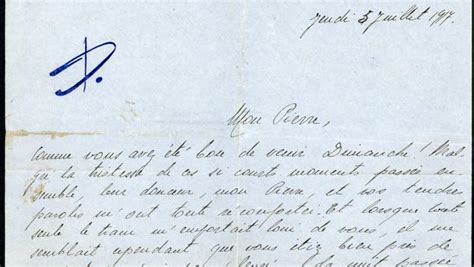 Jeudi 5 Juillet 1917.
Mon Pierre,
Comme vous avez été bon de venir Dimanche! Mal-
gré la tristesse de ces si courts moments passés en-
semble, leur douceur, mon Pierre, et vos tendres
paroles m'ont toute réconfortée. Et lorsque toute
seule le train m'emportait loin de vous, il me
semblait cependant que vous étiez bien près de
la nuit passée